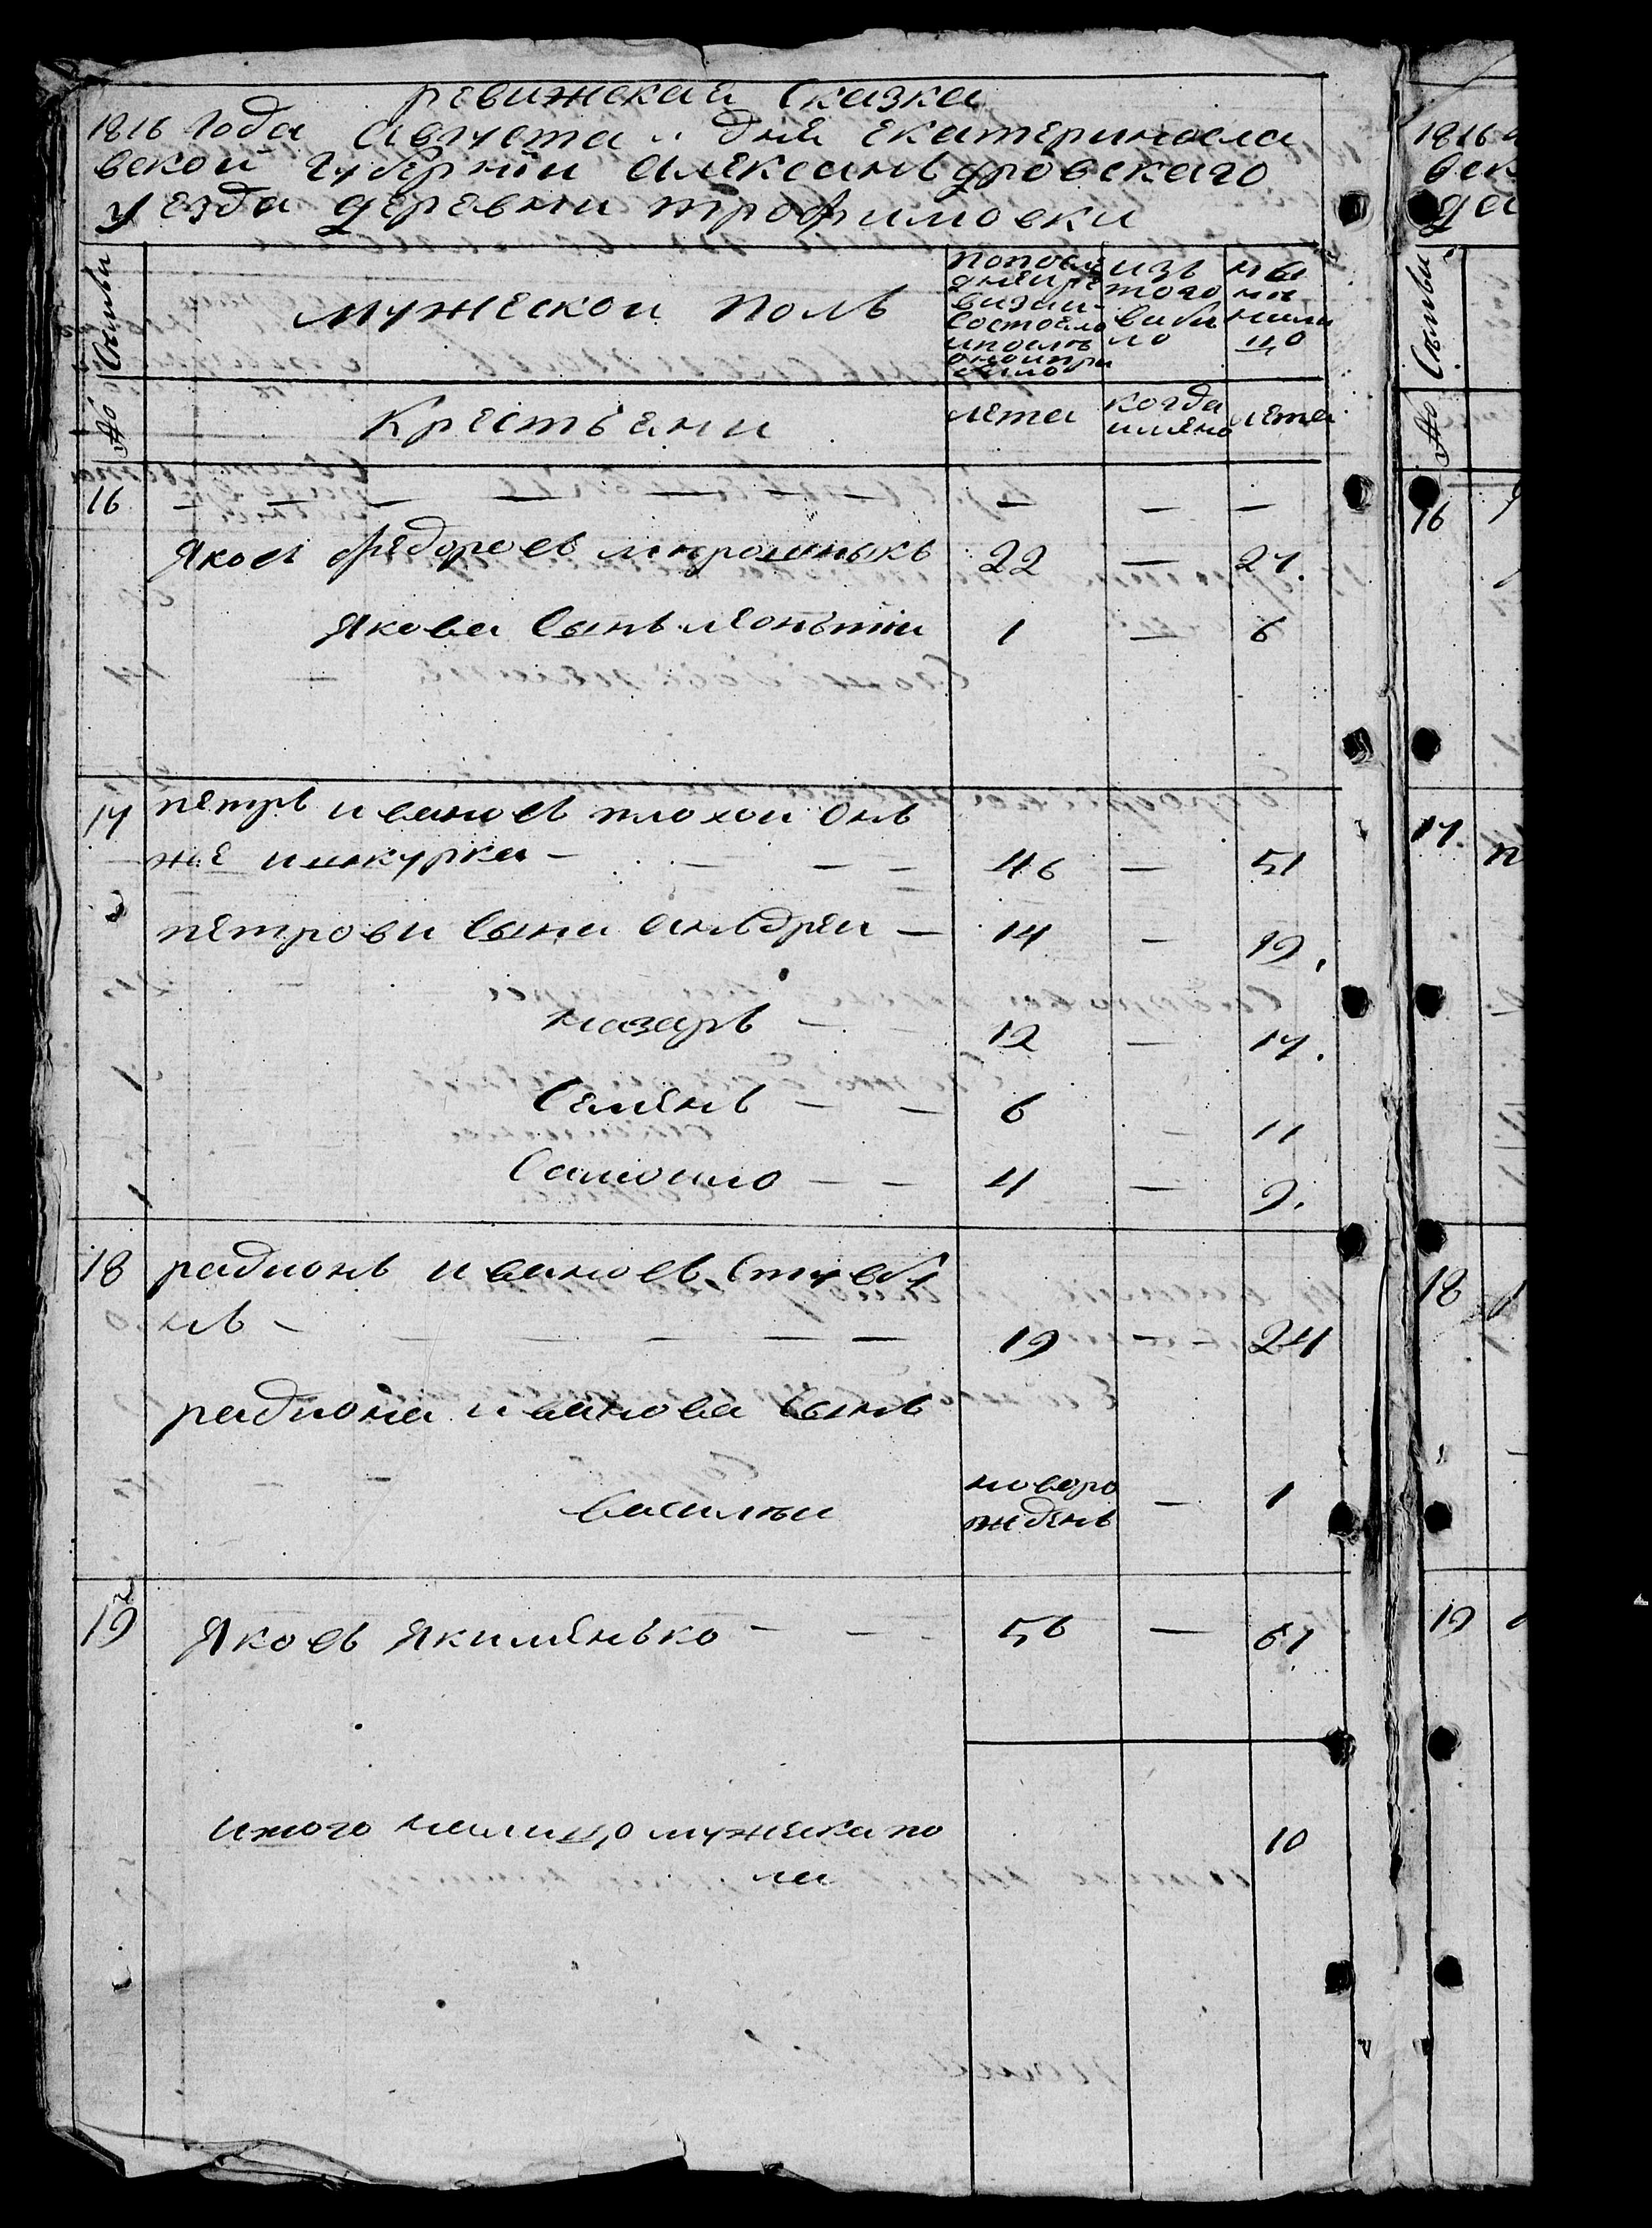 ревижская сказка
1816 года августа " дня екатериносла
вской губернии алексанъдровскаго
уезда деревни трофимовки
№ Семьи
мужескои полъ
попосле
дней ре
визии
состояло
ипослъ
оной при
было
изъ
того
вибы
ло
ны
не
нали
цо
крестъяни
лета
когда
имяно
лета
16 — — — — — — — —
Яковъ федоровъ мирошныкъ 22 — 27.
Якова сынъ леонътии 1 — 6
17 петръ ивановъ плохои онъ
же ишкурка — — — — 46 — 51
петрови сыни анъдреи — 14 — 19.
назаръ — — 12 — 17.
Семенъ — — 6 — 11
Самоило — — 4 — 9.
18 радионъ ивановъ
нъ — — — — — — 19 — 24
радиона иванова сынъ
василии новоро
жденъ — 1
19 Яковъ Якименъко — — — 56 — 61
итого налицо мужеска по
ла 10
1816
16
17.
18
19